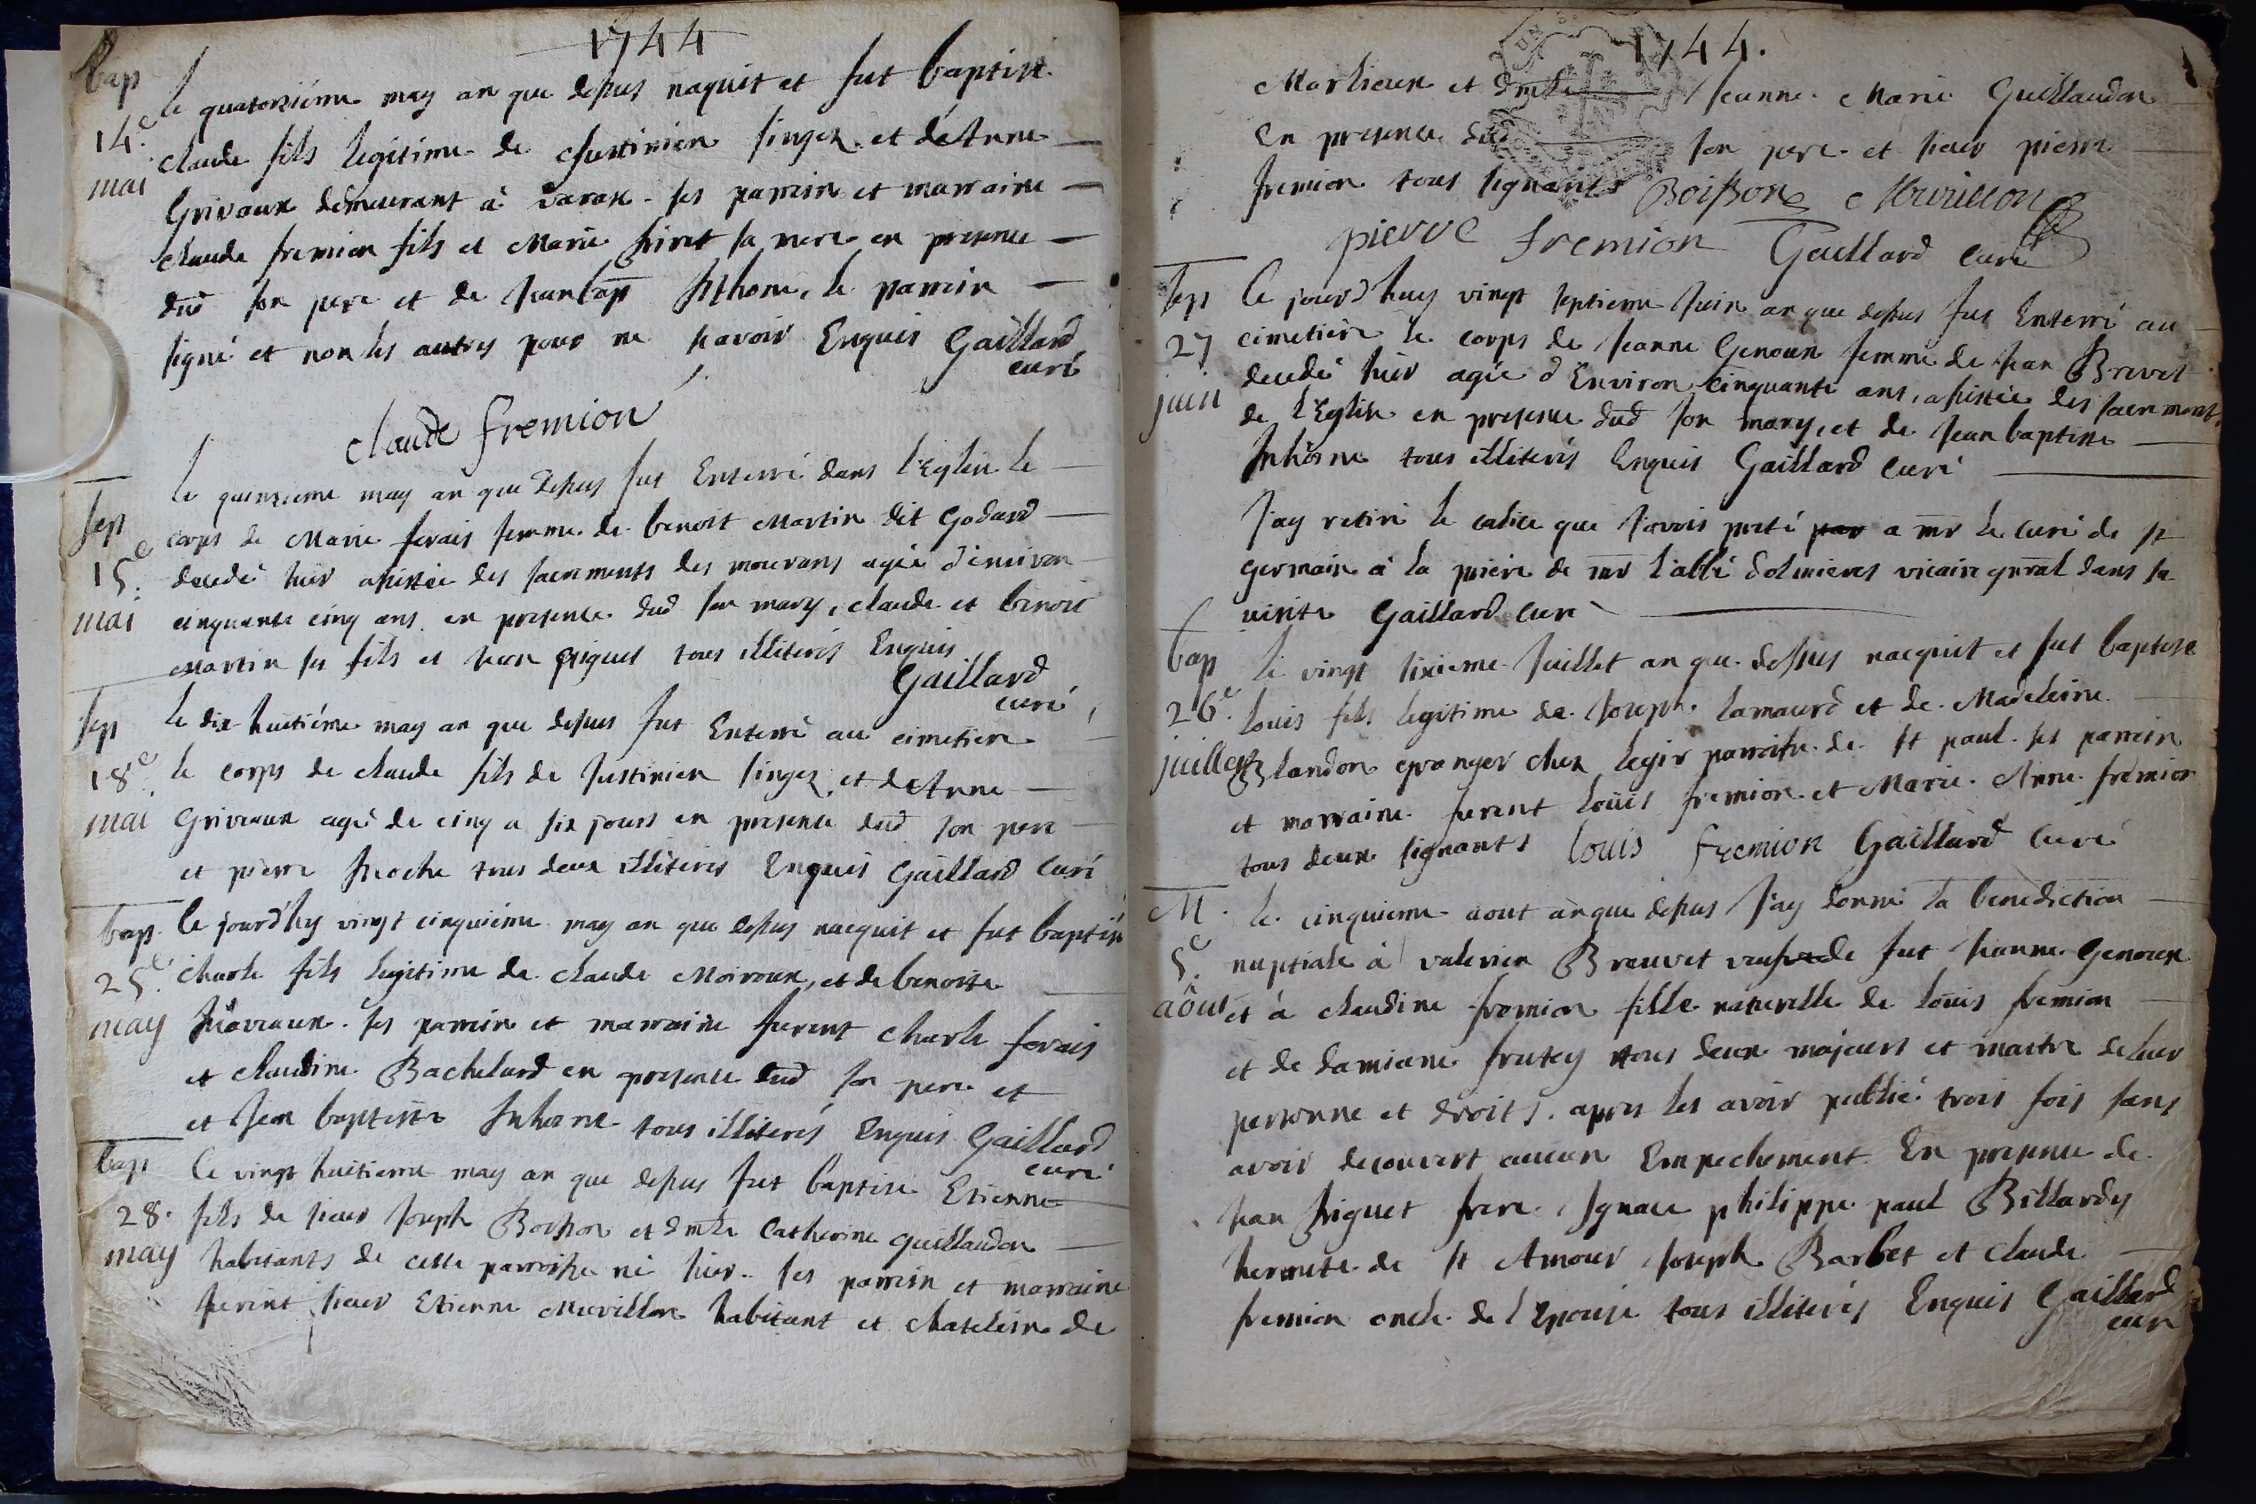 1744
bap
14e
mai
le quatorziéme may an que dessus naquit et fut baptisé
claude fils legitime de Justinien singez et d'Anne
Grivaux demeurant à varax. ses parrein et marraine
claude fremion fils et Marie sa mere en presence
dud son pere et de Jeanbap Inhone, le parrein
signé et non les autres pour ne scavoir Enquis Gaillard
curé
claude fremion
sep
15e
mai
le quinzieme may an que dessus fut Enterré dans l'Eglise le
corps de Marie ferais femme de benoit Martin dit Godard
decedé hier assistée des sacrements des mourans agée d'environ
cinquante cinq ans en presence dud son mary, claude et benoit
Martin ses fils et Jean tous illiterés Enquis
Gaillard
curé
sep
18e
mai
le dix huitiéme may an que dessus fut Enterré au cimetiere
le corps de claude fils de Justinien singez et d'Anne
Griveaux agé de cinq a six jours en presence dud son pere
et pierre tous deux illiterés Enquis Gaillard curé
bap
25e
may
Ce jourd'hy vingt cinquiéme may an que dessus nacquit et fut baptisé
charle fils legitime de claude Moiroux, et de benoitte
ses parrein et marraine furent charle ferais
et claudine Bachelard en presence dud son pere et
et Jean baptiste Inhone tous illiterés Enquis Gaillard
curé
bap
28.
may
Ce vingt huitieme may an que dessus fut baptisé Etienne
fils de sieur Joseph Boisson et dmlle Catherine guillaudon
habitants de cette parroisse né hier. ses parrein et marraine
furent sieur Etienne Muvillon habitant et chatelein de
1744.
Marlieux et dmlle Jeanne Marie Guillaudon
En presence dud son pere et sieur pierre
fremion tous signants Boisson Muvillon
pierre fremion Gaillard curé
sep
27
juin
Ce jourd'huy vingt septieme Juin an que dessus fut Enterré au
cimetiere le corps de Jeanne Genoux femme de Jean Brevet
decedé hier agée d'Environ cinquante ans, assistée des sacrements
de l'Eglise en presence dud son mary, et de Jean baptiste
Inhone tous illiterés Enquis Gaillard curé
J'ay retiré le calice que J'avois preté par a mr le curé de st
germain à la priere de mr l'abbé dolmieres vicaire gnral dans sa
visite Gaillard curé
bap
26e.
juillet
le vingt sixieme Juillet an que dessus nacquit et fut baptisé
louis fils legitime de Joseph lamaurd et de Madeleine
Blandon granger chez legir parroisse de st paul. ses parrein
et marraine furent loüis fremion et Marie Anne fremion
tous deux signants louis fremion Gaillard curé
M.
5e.
aôut
le cinquieme aout an que dessus J'ay donné la benediction
nuptiale à valerien Brauvet veuf de fut Jeanne Genoux
et à claudine fremion fille naturelle de loüis fremion
et de damiane frutey tous deux majeurs et maitre de leur
personne et droits. apres les avoir publié trois fois sans
avoir decouvert aucun Empechement. En presence de
Jean frere Ignace philippe paul Billardy
hermite de st Amour Joseph Barbet et claude
fremion oncle de l'Epouse tous illiterés Enquis Gaillard
curé